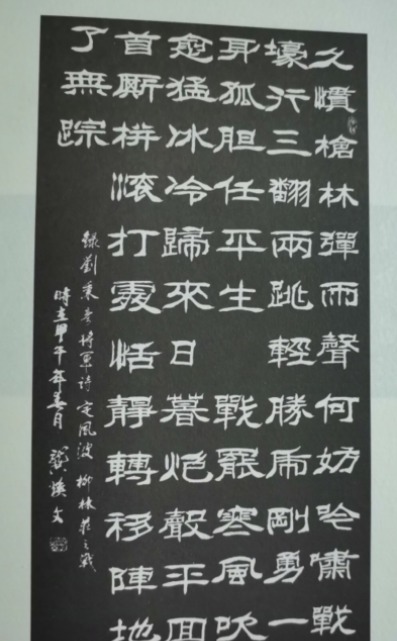 久慣槍林彈雨聲何妨吟嘯戰
壕行三翻兩跳輕勝馬剛勇一
身孤胆任平生 戰罷寒風吹
愈猛冰冷歸來日暮炮聲平回
首厮拼滾打處恬靜轉移陣地
了無踪
錄劉秉彥將軍詩定風波 柳林莊之戰
時在甲午年春月 文